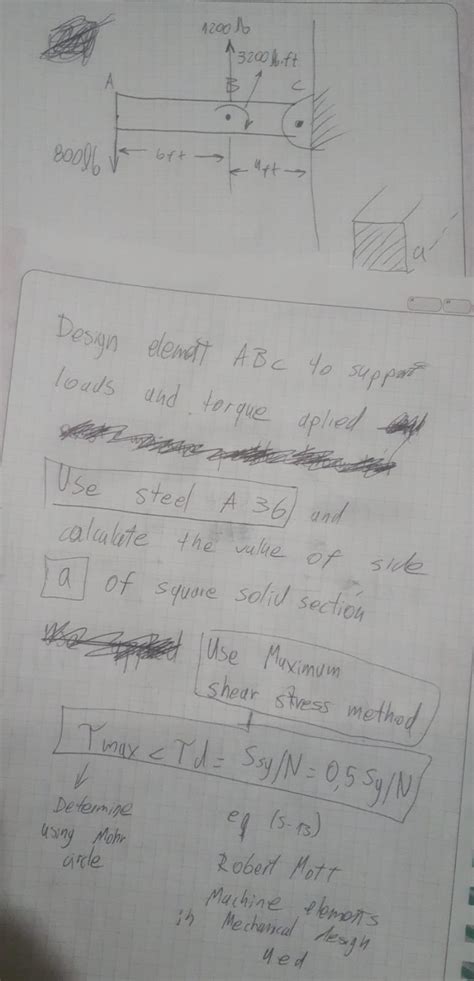 1200 lb
3200 lb.ft
A
B
C
800 lb
6ft
4ft
a
Design elemtt ABC to support
loads and torque aplied
Use steel A 36 and
calculate the value of side
a of square solid section
Use Maximum
shear stress method
Tmax < Td = Ssy/N = 0,5 Sy/N
Determine
using Mohr
circle
eq (5-13)
Robert Mott
Machine elements
in Mechanical design
4ed